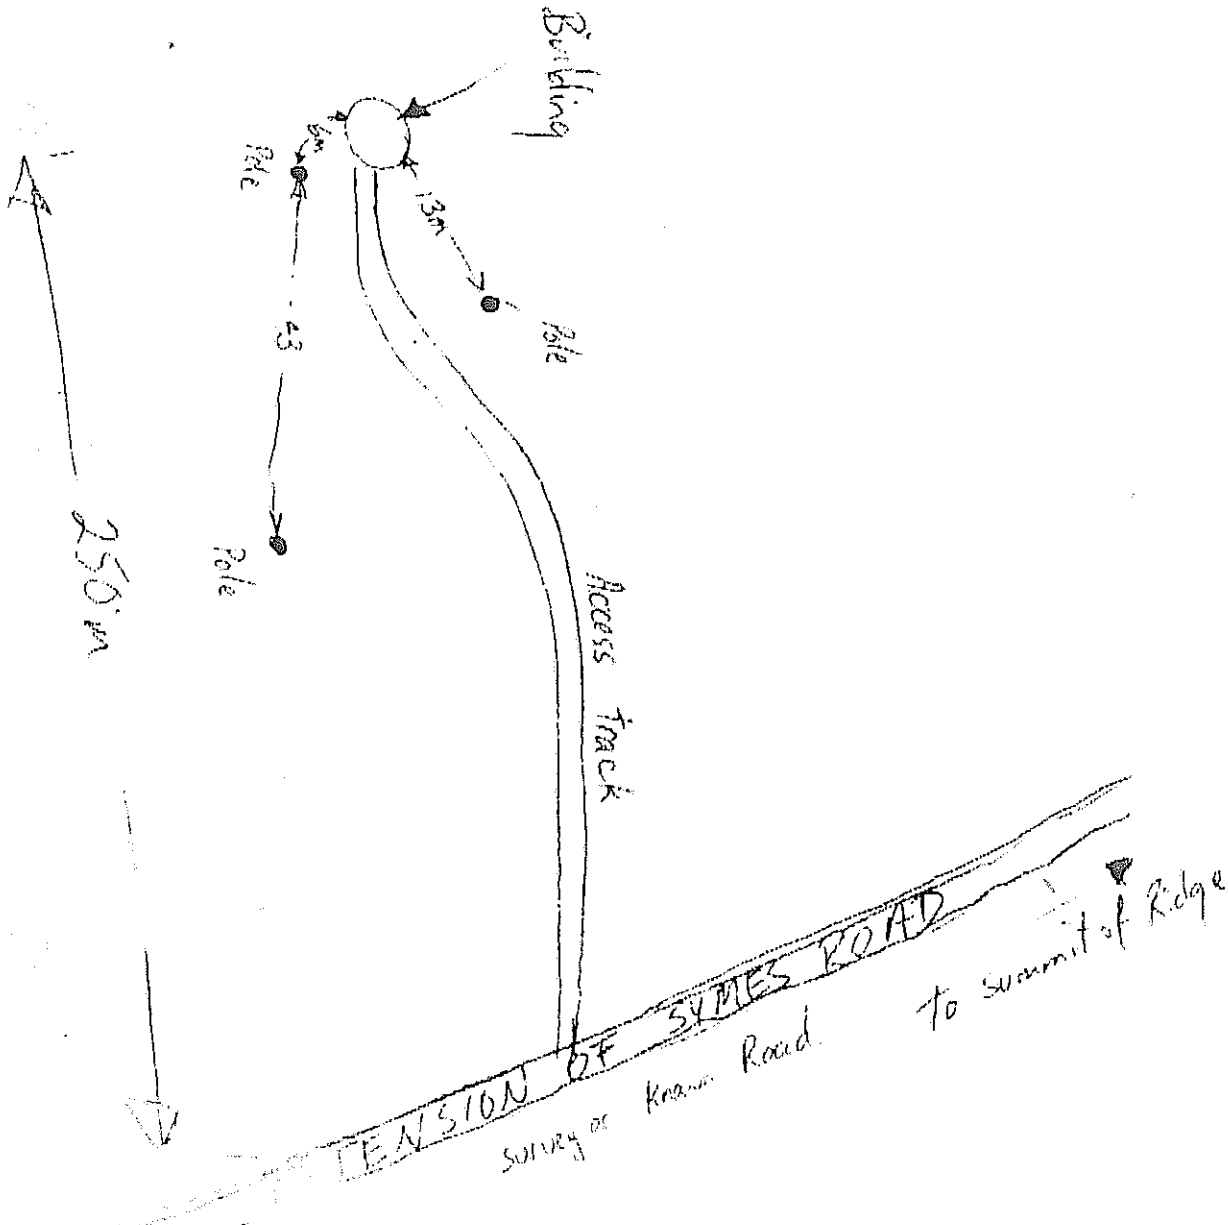 Building
6m
Pole
13m
Pole
Pole
250m
Access Track
TENSION OF SYMES ROAD
survey or Known Road.
To summit of Ridge